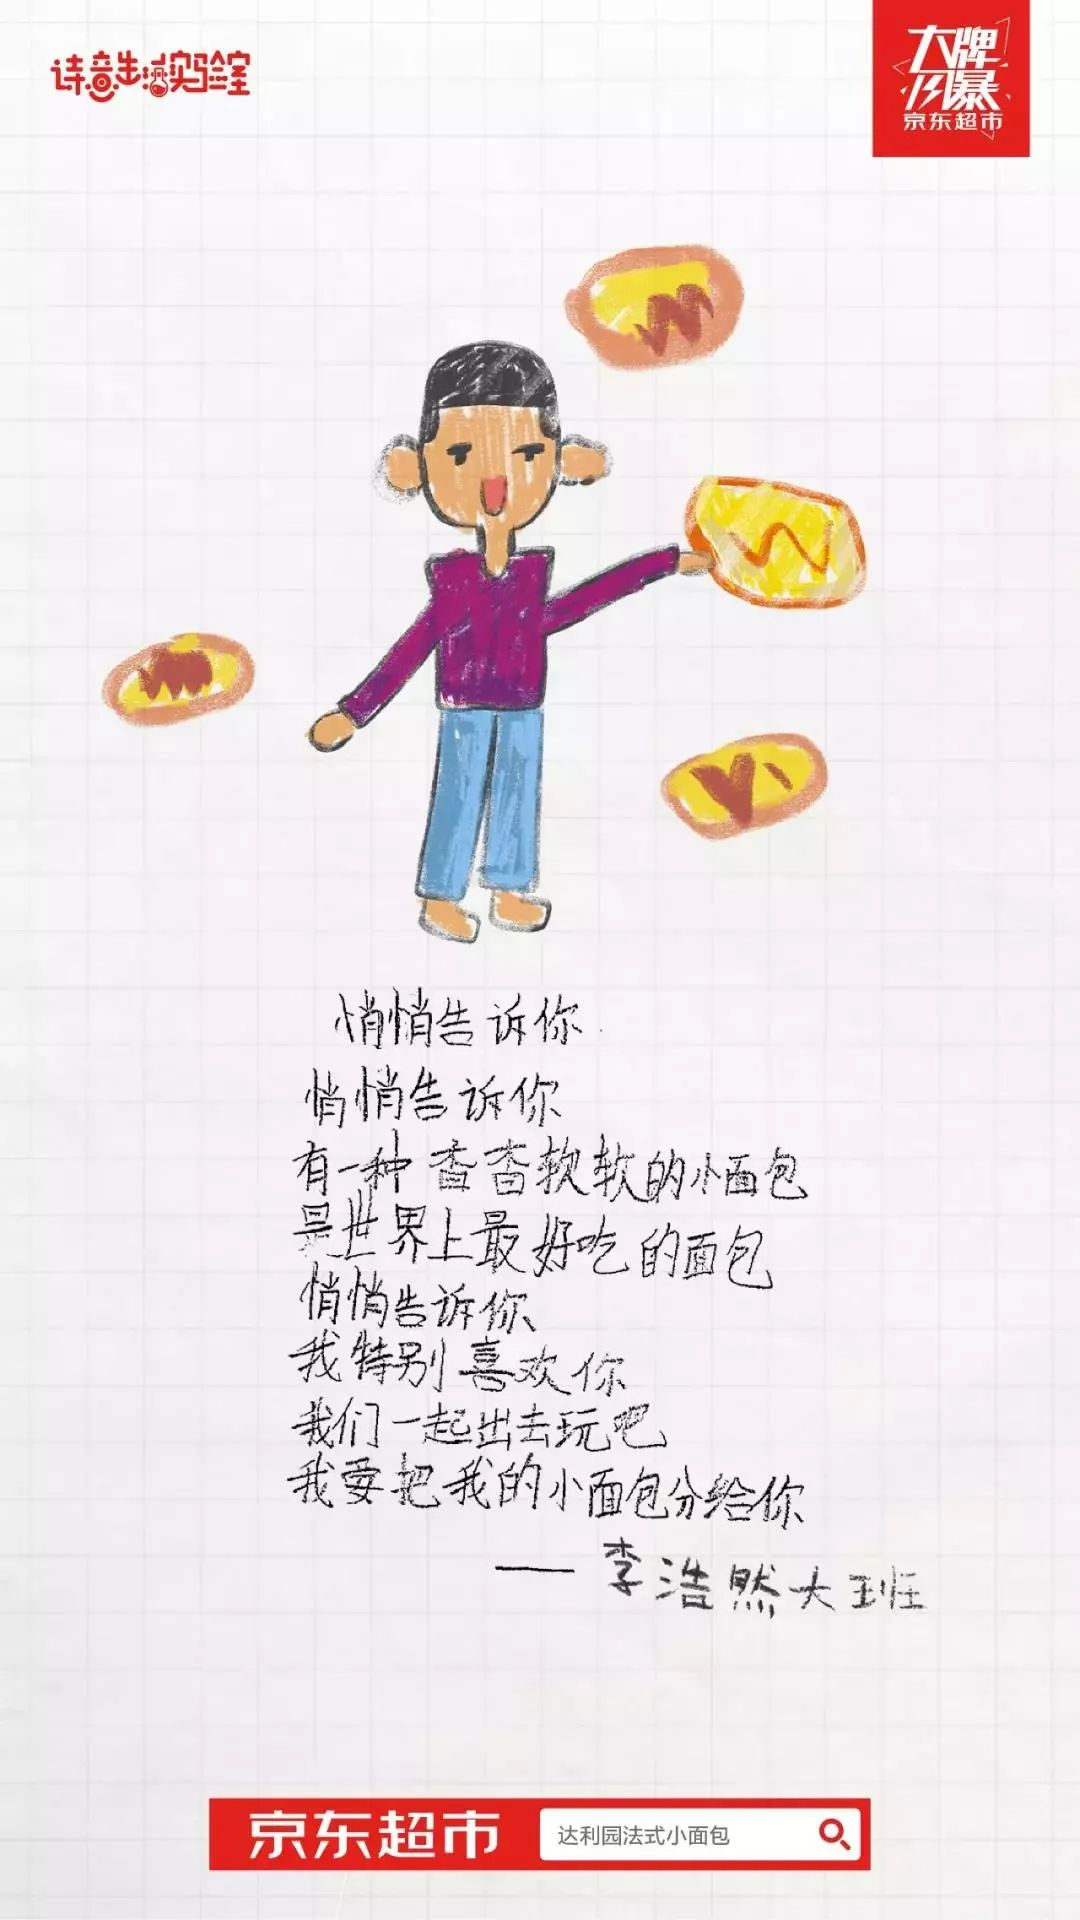 诗意生活实验室
大牌
风暴
京东超市
悄悄告诉你
悄悄告诉你
有一种香香软软的小面包
是世界上最好吃的面包
悄悄告诉你
我特别喜欢你
我们一起出去玩吧
我要把我的小面包分给你
——李浩然大班
京东超市
达利园法式小面包